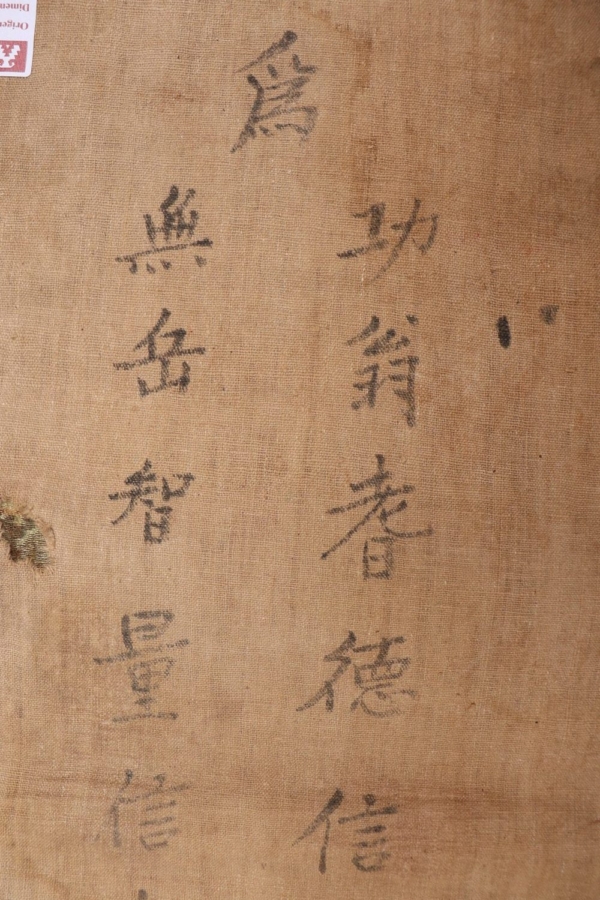 爲
功翁耆德信
無岳智量信
Origen
Dimen